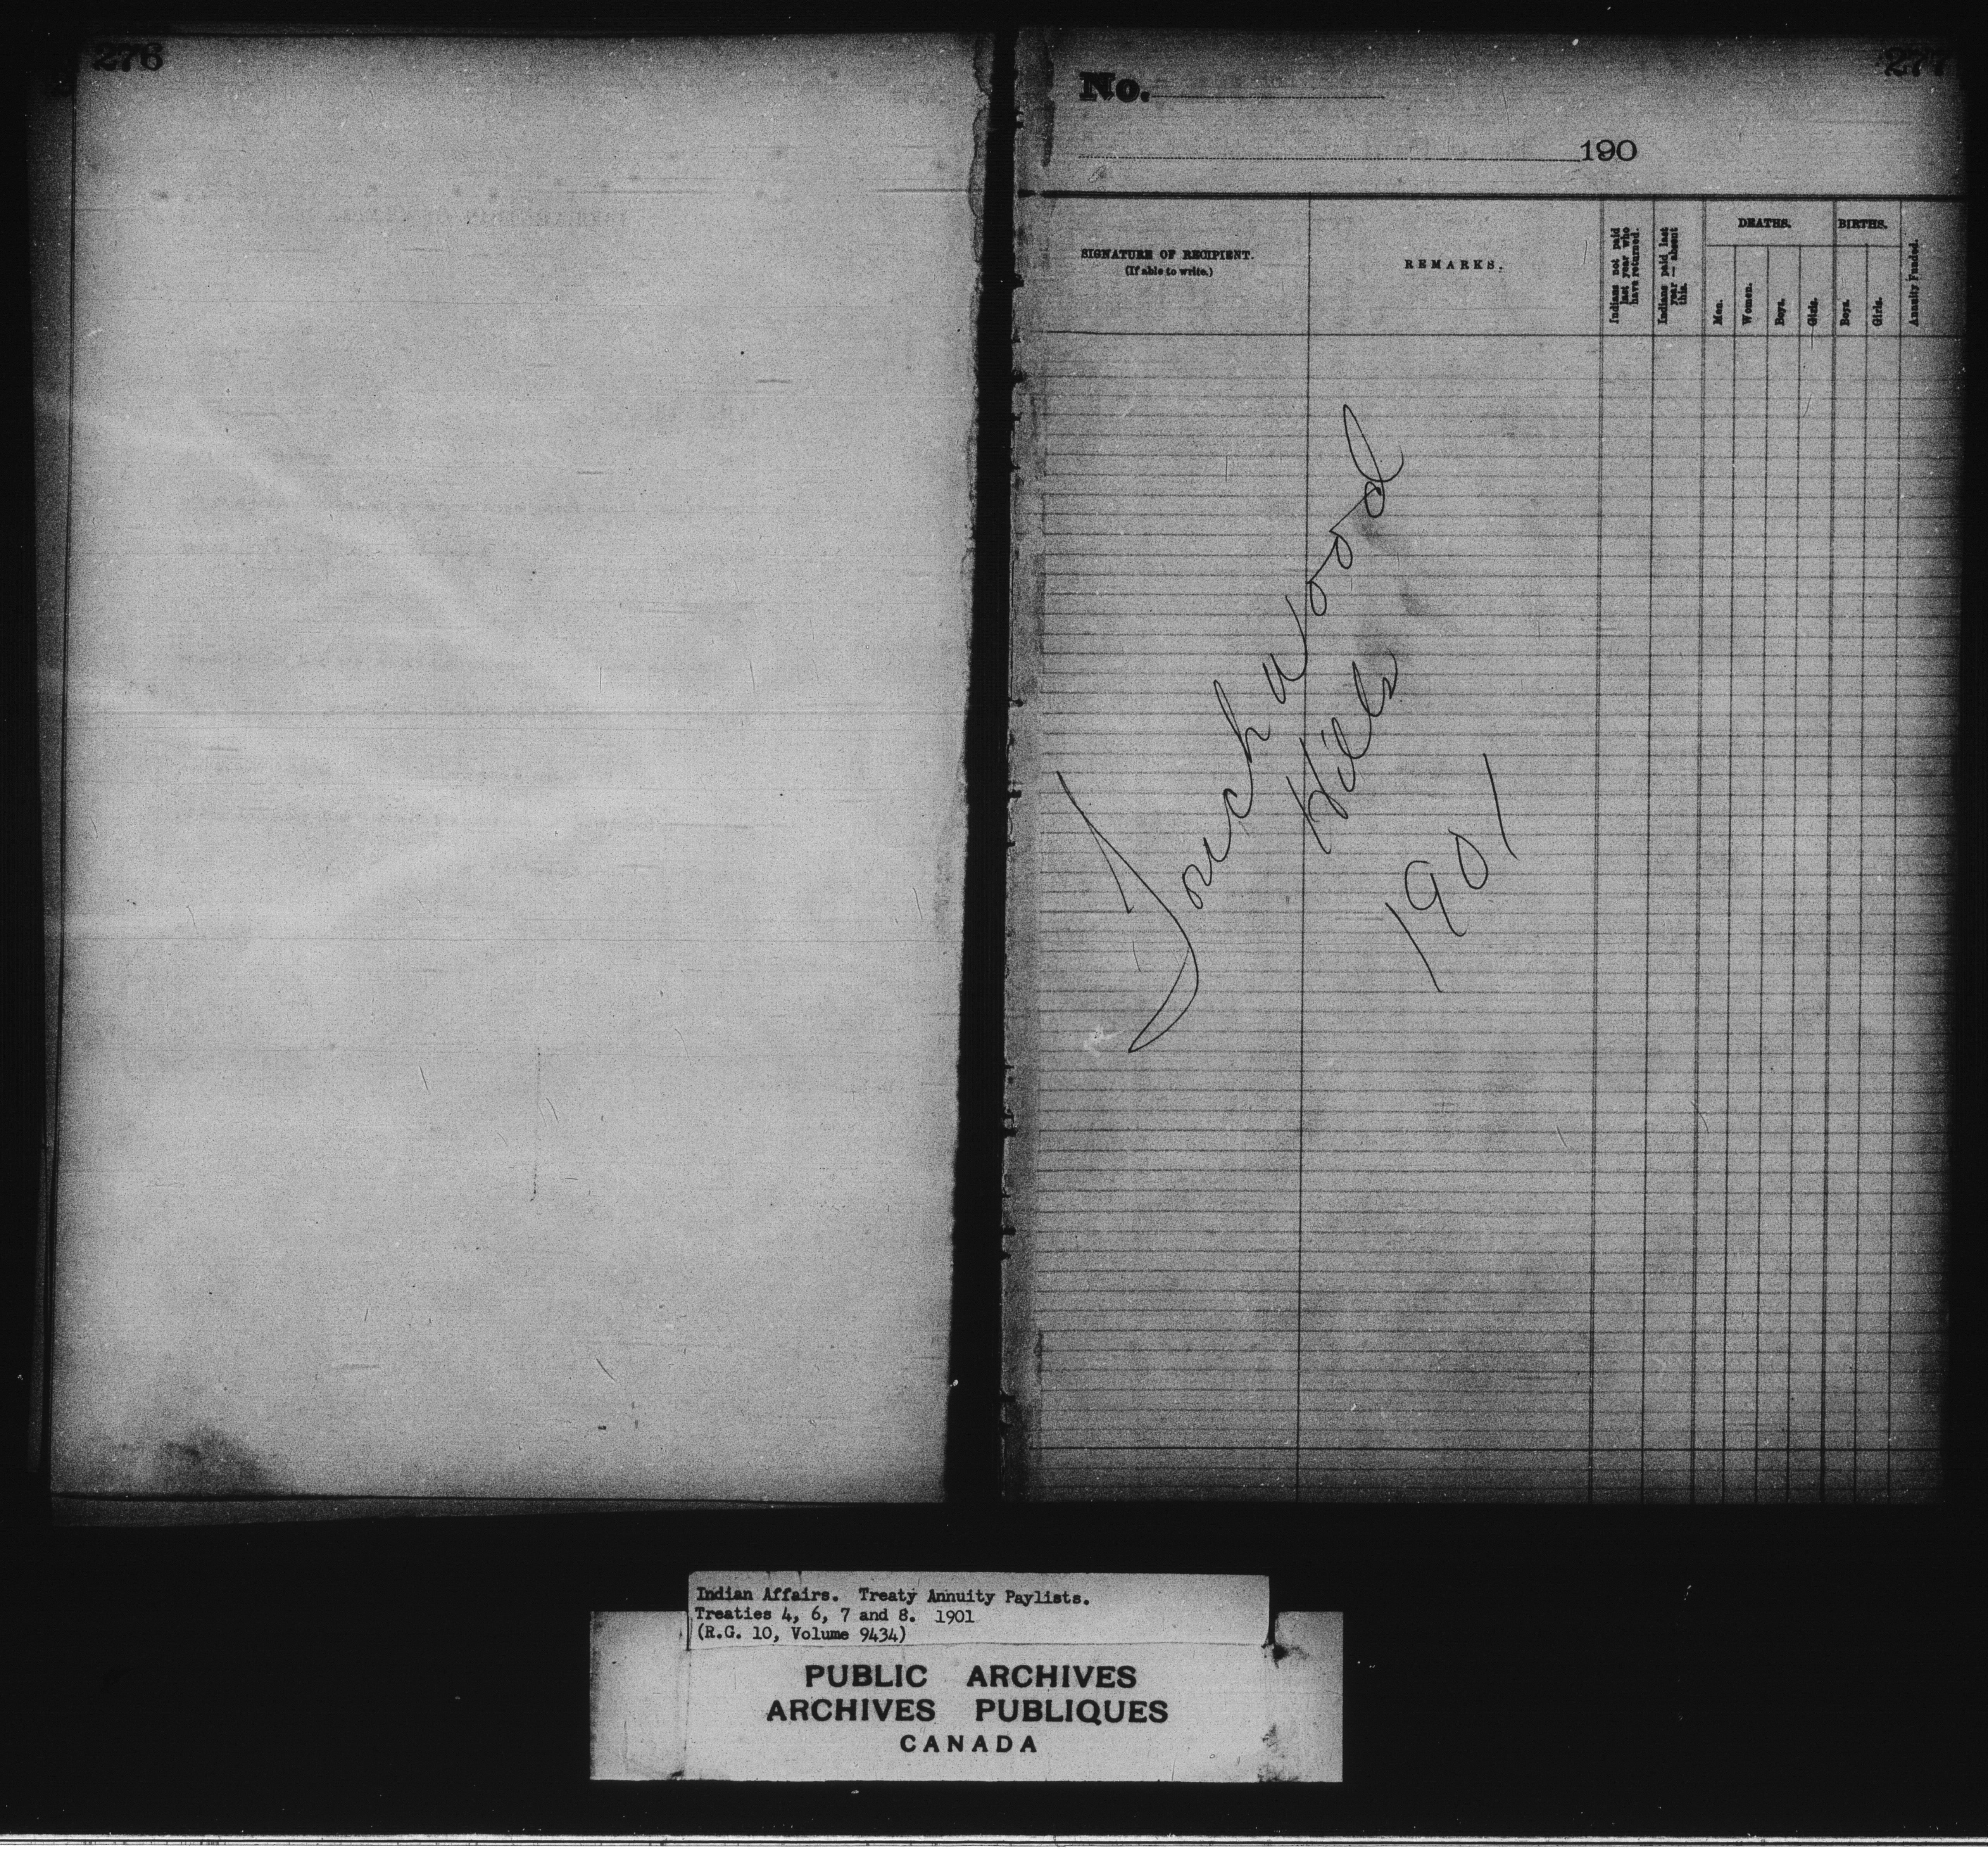 276
277
No.
190
SIGNATURE OF RECIPIENT.
(If able to write.)
REMARKS.
Indians not paid last year who have returned.
Indians paid last year — absent this.
DEATHS.
Men.
Women.
Boys.
Girls.
BIRTHS.
Boys.
Girls.
Annuity Funded.
Touchwood
Hills
1901
Indian Affairs. Treaty Annuity Paylists.
Treaties 4, 6, 7 and 8. 1901
(R.G. 10, Volume 9434)
PUBLIC ARCHIVES
ARCHIVES PUBLIQUES
CANADA